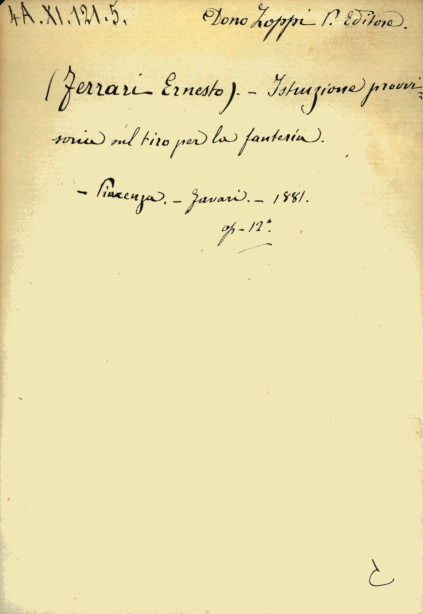 4A. XI. 121. 5.
Dono Zoppi P. Editore.
(Ferrari Ernesto). - Istruzione provvi=
soria sul tiro per la fanteria.
- Piacenza. - Favari. - 1881.
op - 12°.